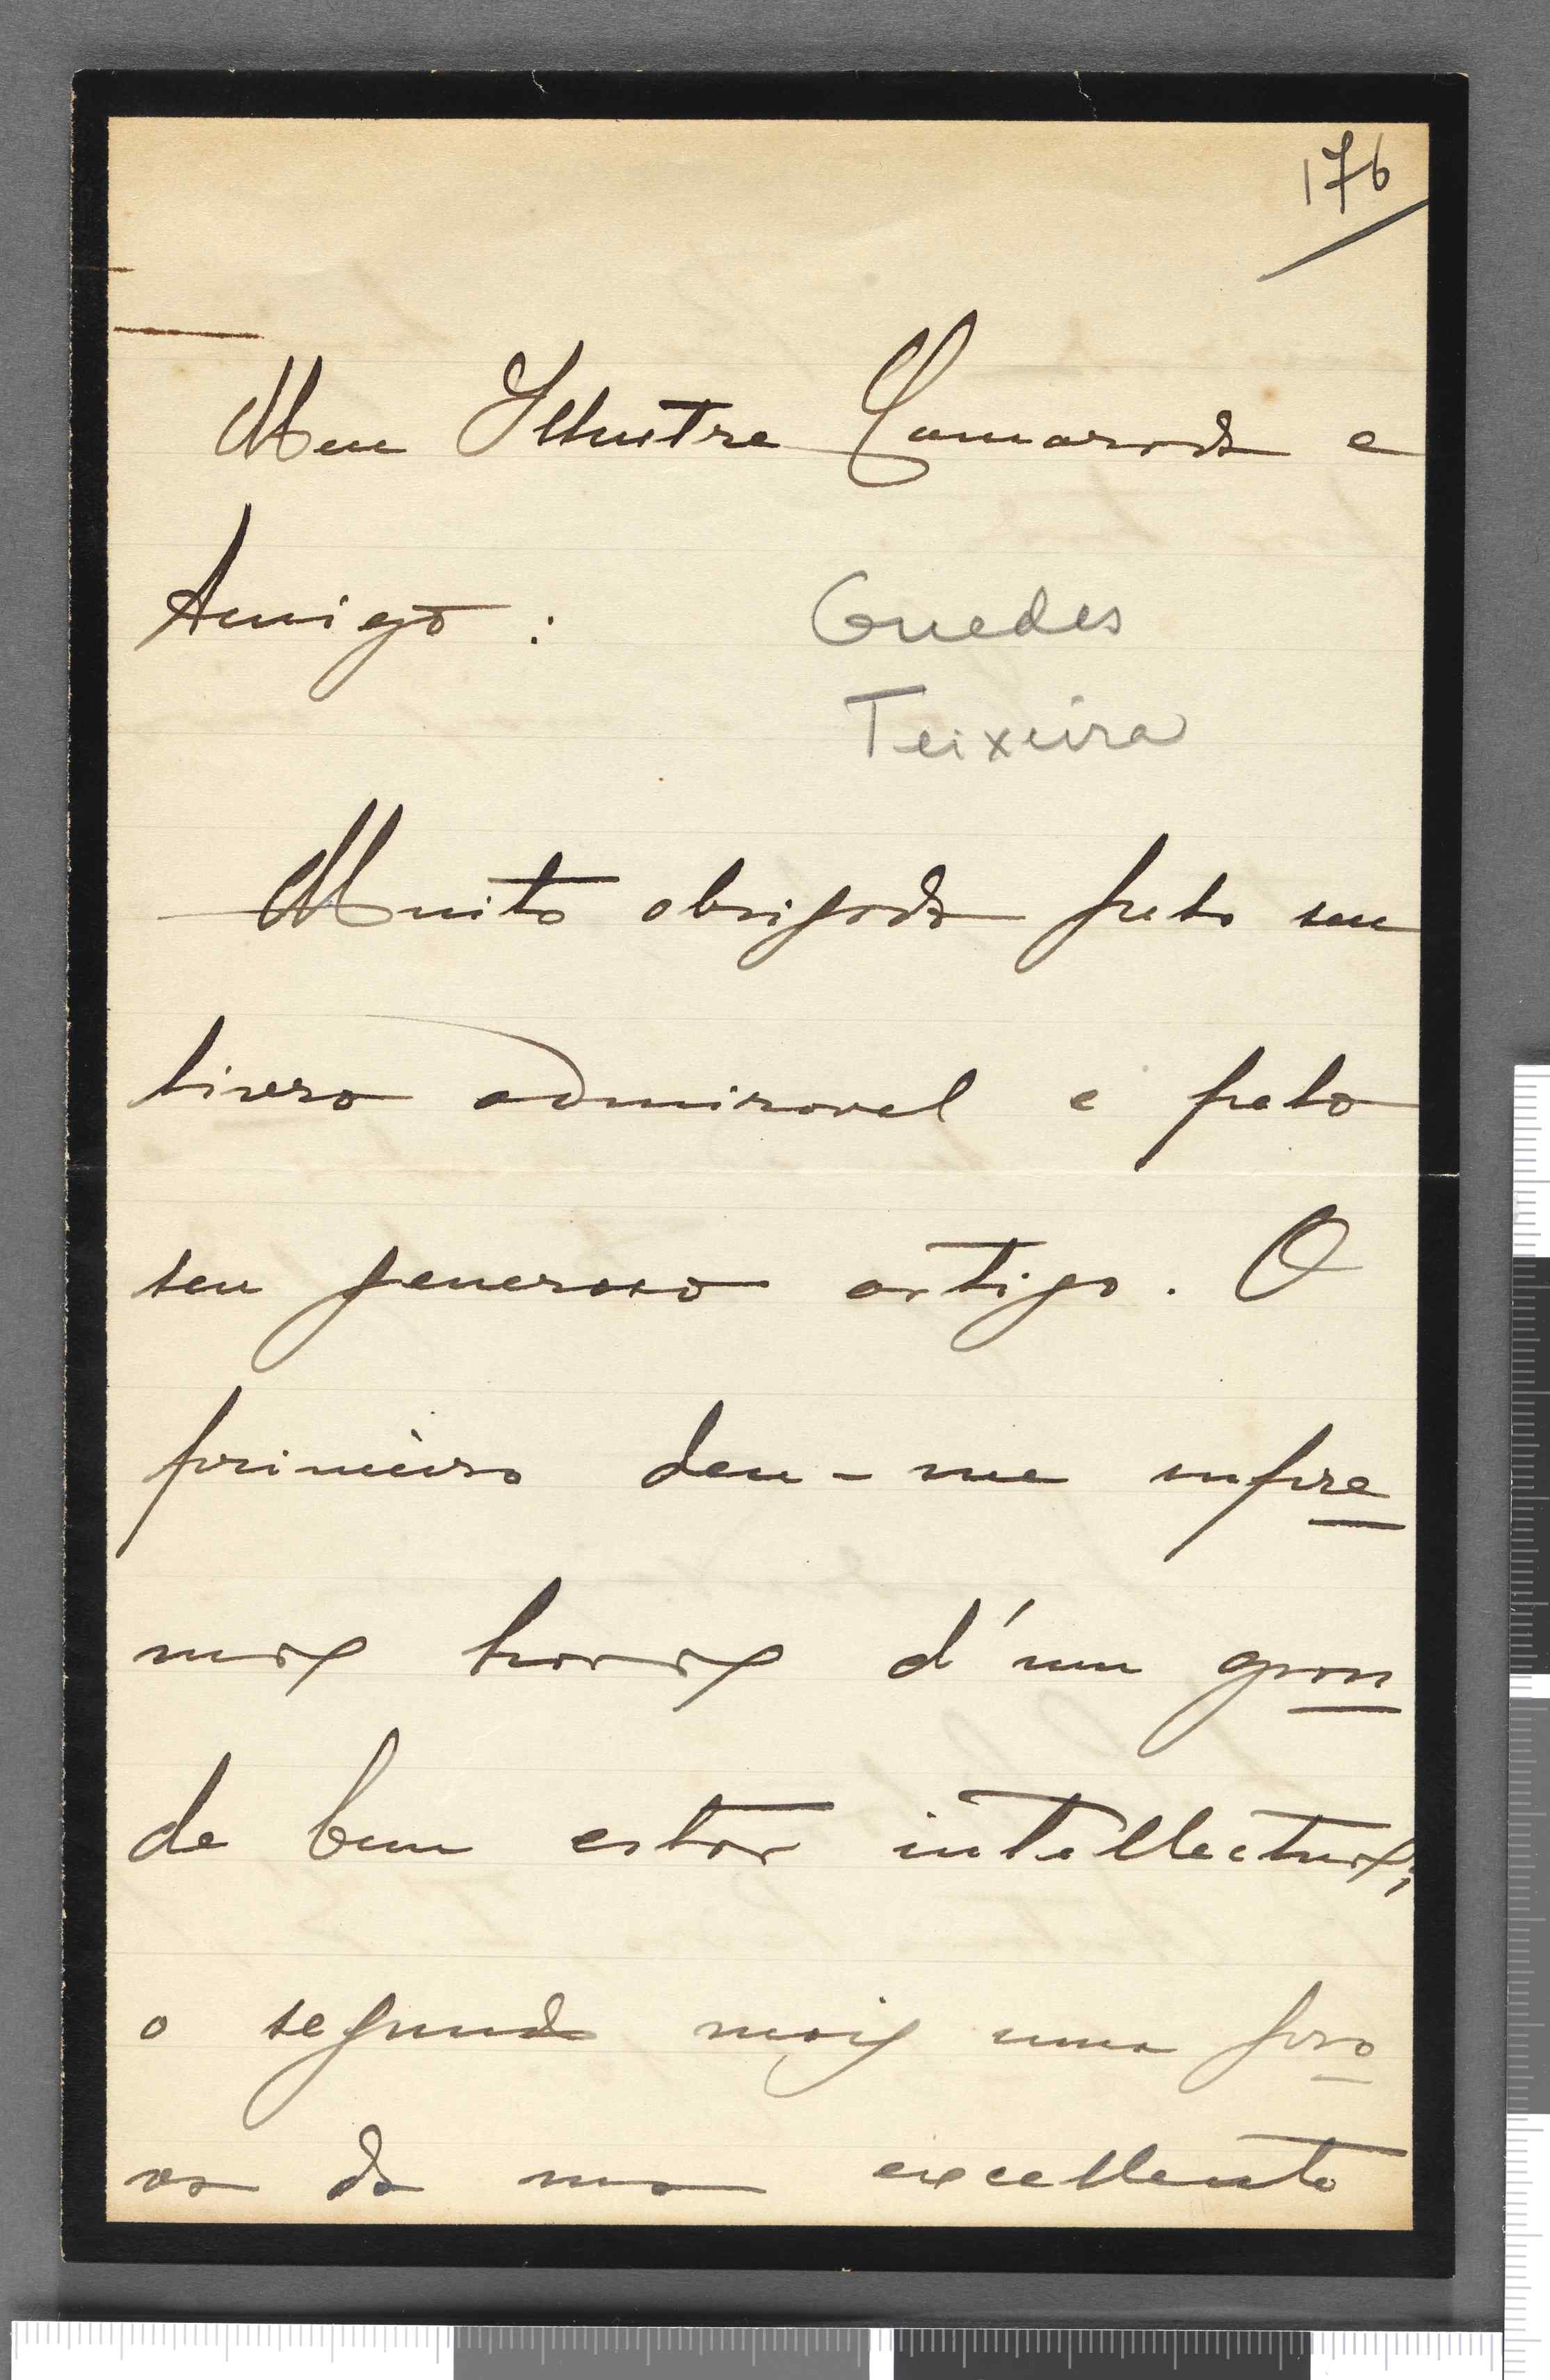 176
Meu Illustre Camarada e
Amigo :
Guedes
Teixeira
Muito obrigado pelo seu
livro admiravel e pelo
seu generoso artigo. O
primeiro deu-me supre
mas horas d'um gran
de bem estar intellectual;
o segundo mais uma pro
va da sua excellente